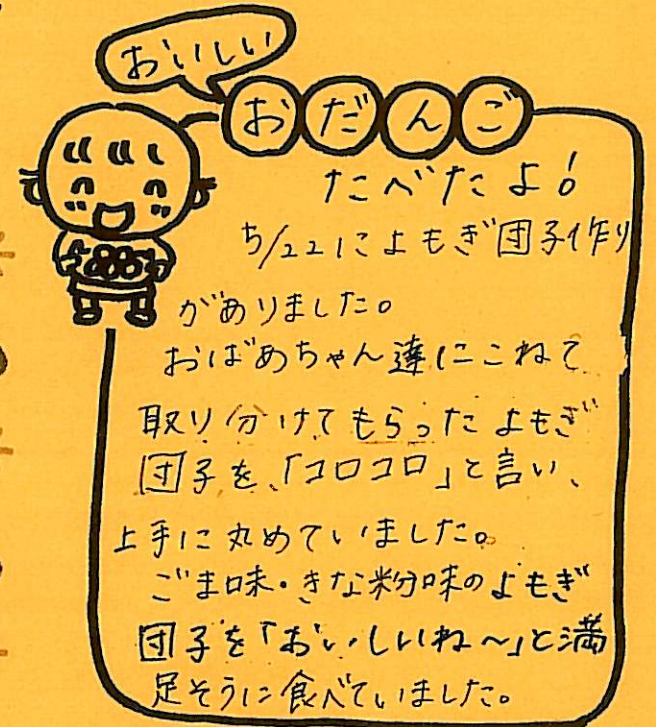 おいしい
おだんご
たべたよ!
5/22によもぎ団子作り
がありました。
おばあちゃん達にこねて
取り分けてもらったよもぎ
団子を、「コロコロ」と言い、
上手に丸めていました。
ごま味・きな粉味のよもぎ
団子を「おいしいね~」と満
足そうに食べていました。